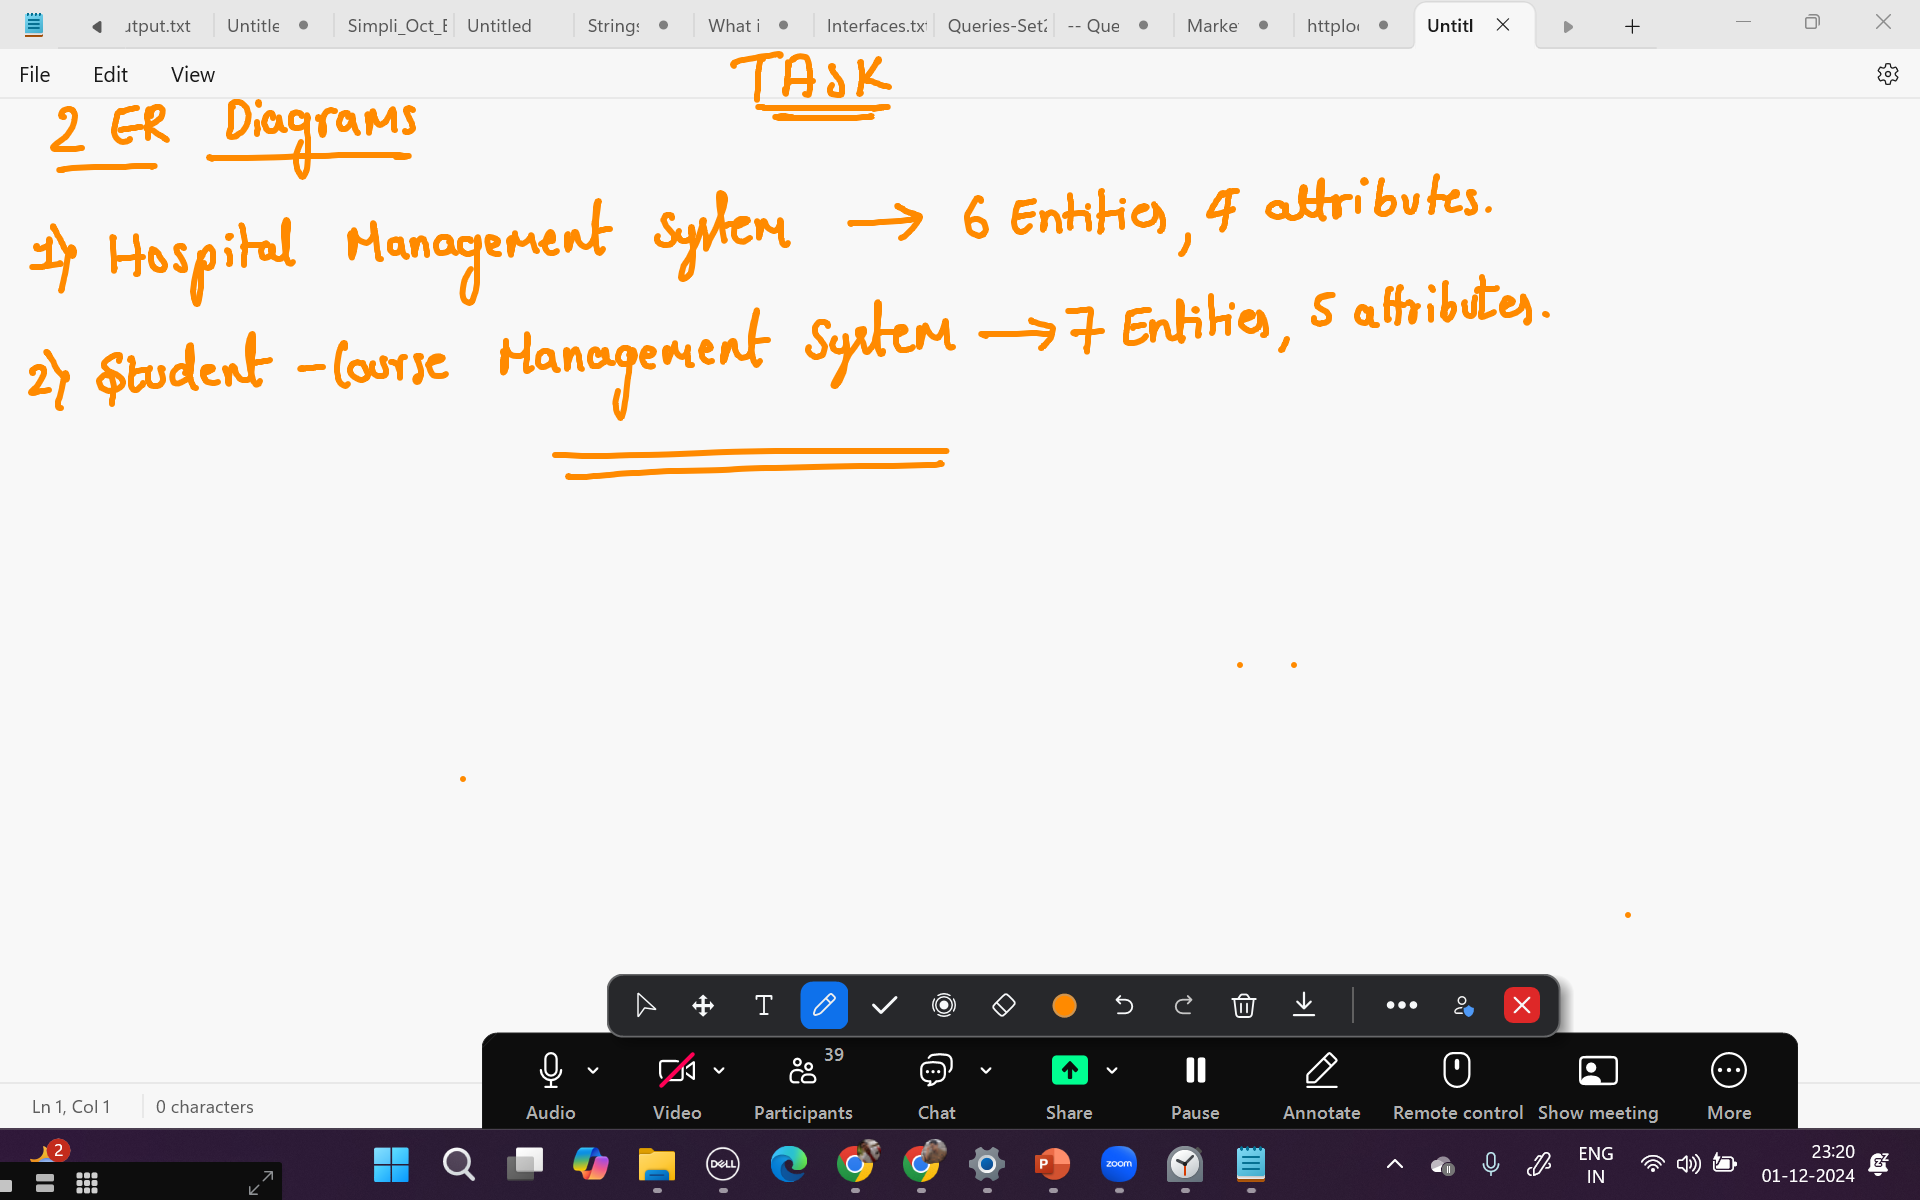 utput.txt Untitle Simpli_Oct_E Untitled Strings What i Interfaces.txt Queries-Set2 -- Que Marke httploc Untitl
File Edit View
TASK
2 ER Diagrams
1) Hospital Management System → 6 Entities, 4 attributes.
2) Student - Course Management System → 7 Entities, 5 attributes.
39
Audio Video Participants Chat Share Pause Annotate Remote control Show meeting More
Ln 1, Col 1 0 characters
2
DELL
P
zoom
ENG
IN
23:20
01-12-2024